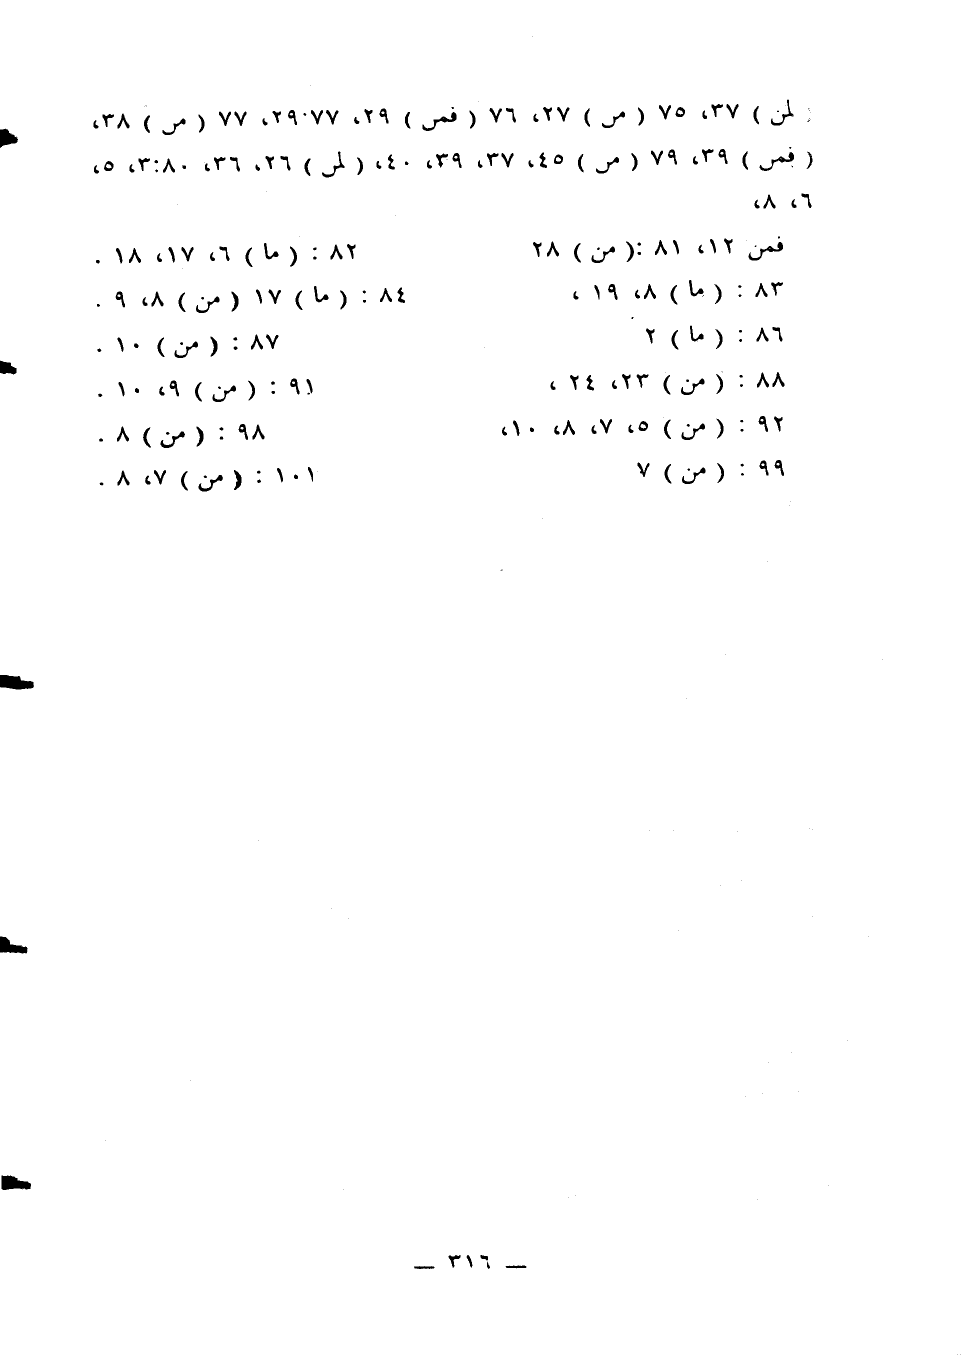 ( لمن ) ٣٧، ٧٥ ( من ) ٢٧، ٧٦ ( فمن ) ٢٩، ٢٩٠٧٧، ٧٧ ( من ) ٣٨،
( فمن ) ٣٩، ٧٩ ( من ) ٤٥، ٣٧، ٣٩، ٤٠، ( لمن ) ٢٦، ٣٦، ٣:٨٠، ٥،
٦، ٨،
فمن ١٢، ٨١ :( من ) ٢٨ ٨٢ : ( ما ) ٦، ١٧، ١٨ .
٨٣ : ( ما ) ٨، ١٩ ، ٨٤ : ( ما ) ١٧ ( من ) ٨، ٩ .
٨٦ : ( ما ) ٢ ٨٧ : ( من ) ١٠ .
٨٨ : ( من ) ٢٣، ٢٤ ، ٩١ : ( من ) ٩، ١٠ .
٩٢ : ( من ) ٥، ٧، ٨، ١٠، ٩٨ : ( من ) ٨ .
٩٩ : ( من ) ٧ ١٠١ : ( من ) ٧، ٨ .
— ٣١٦ —